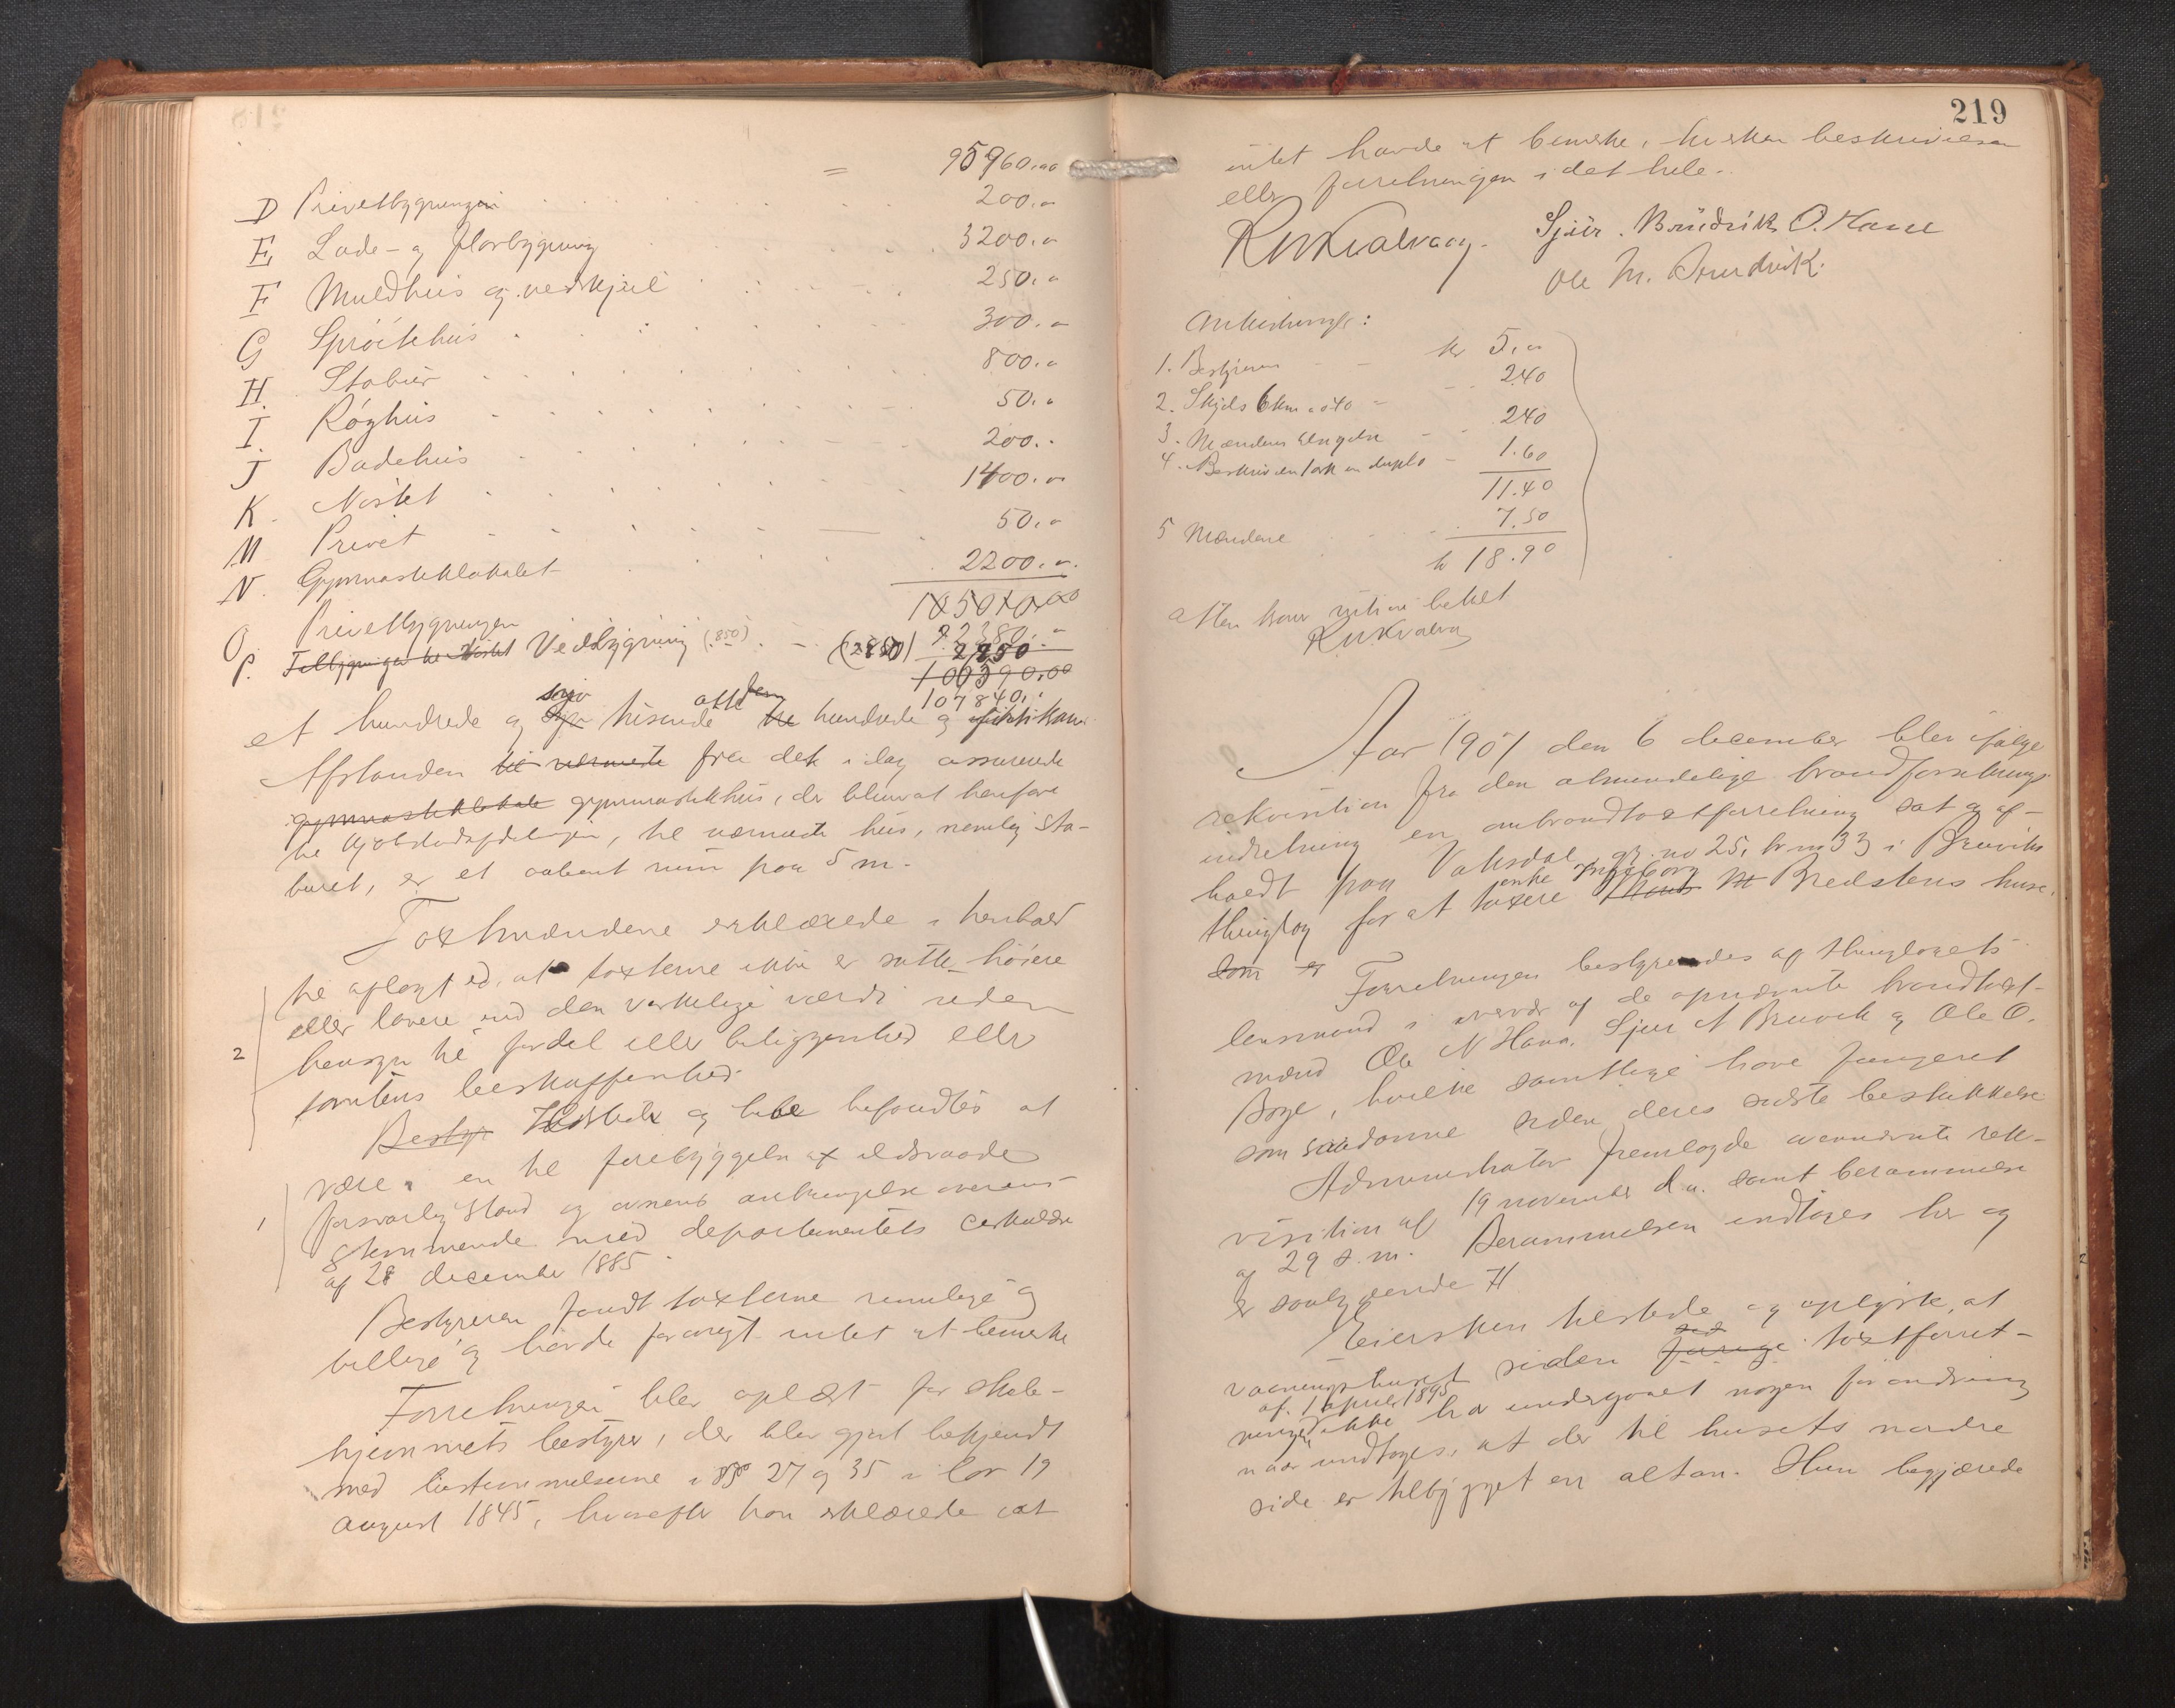 = 95960.00
D Privetbygningen 200.-
E Lade- og florbygning 3200.-
F Muldhus og vedskjul 250.-
G Sprøitehus 300.-
H. Stabur 800.-
I. Røghus 50.-
J Badehus 200.-
K. Nøstet 1400.-
M Privet 50.-
N. Gymnastiklokalet 2200.-
O. Privetbygningen
P. Tilbygningen til Nøstet Vedbygning (850) (2850) 2850.-
100390.00
107840.-
et hundrede og syv tusende otte hundrede og
Afstanden til nærmeste fra det idag assurerede
gymnastiklokale gymnastikhus, der blev at henføre
til kjøbstadafdelingen, til nærmeste hus, nemlig sta-
buret, er et aabent rum paa 5 m.
Taxtmændene erklærede i henhold
til aflagt ed, at taxterne ikke er satte høiere
eller lavere end den virkelige værdi uden
2 hensyn til fordel eller beliggenhed eller
tomtens beskaffenhed.
Bestyr Ildsteder og befandtes at
være i en til forebyggelse af ildsvaade
1 forsvarlig stand og ovnens anbringelse overens-
stemmende med departementets cirkulære
af 28 december 1885.
Bestyreren fandt taxterne rimelige og
billige og havde forøvrigt intet at bemerke
Forretningen blev oplæst for skole-
hjemmets bestyrer, der blev gjort bekjendt
med bestemmelserne i §§ 27 og 35 i lov 19
august 1845, hvorefter han erklærede at
219
intet havde at bemerke, hverken beskrivelsen
eller forretningen i det hele.
Sjur Brudvik O. Hane
Ole M. Brudvik.
Anledninger:
1. Bestyreren kr 5.-
2. Skyds 6 km a 040 - 2.40
3. Mændens 2.40
4. Beskrivelsen in duplo - 1.60
11.40
5 Mændene 7.50
kr 18.90
atten kroner nitti øre betalt
Aar 1901 den 6 december blev ifølge
rekvisition fra den almindelige brandforsikrings-
indretning en ombrandtaxtforretning sat og af-
holdt paa Vaksdal, gr. no 25, br no 33 i Bruviks
thinglag for at taxere enke Ingeborg Bredstens huse.
som er Forretningen bestyredes af thinglagets
lensmand i overvær af de opnævnte brandtaxt-
mænd Ole N Hana, Sjur A Bruvik og Ole O.
Boge, hvilke samtlige have fungeret
som saadanne siden deres sidste beskikkelse
Administrator fremlagde ovennævnte rek-
visition af 19 november d.a. samt berammelse
af 29 s.m. Berammelsen indtages her og
er saalydende H
Eiersken tilstede og oplyste, at
vaaningshuset siden forrige taxtforret-
ningen af 1 april 1895 ikke har undergaaet nogen forandring
naar undtages, at der til husets nordre
side er tilbygget en altan. Hun begjærede